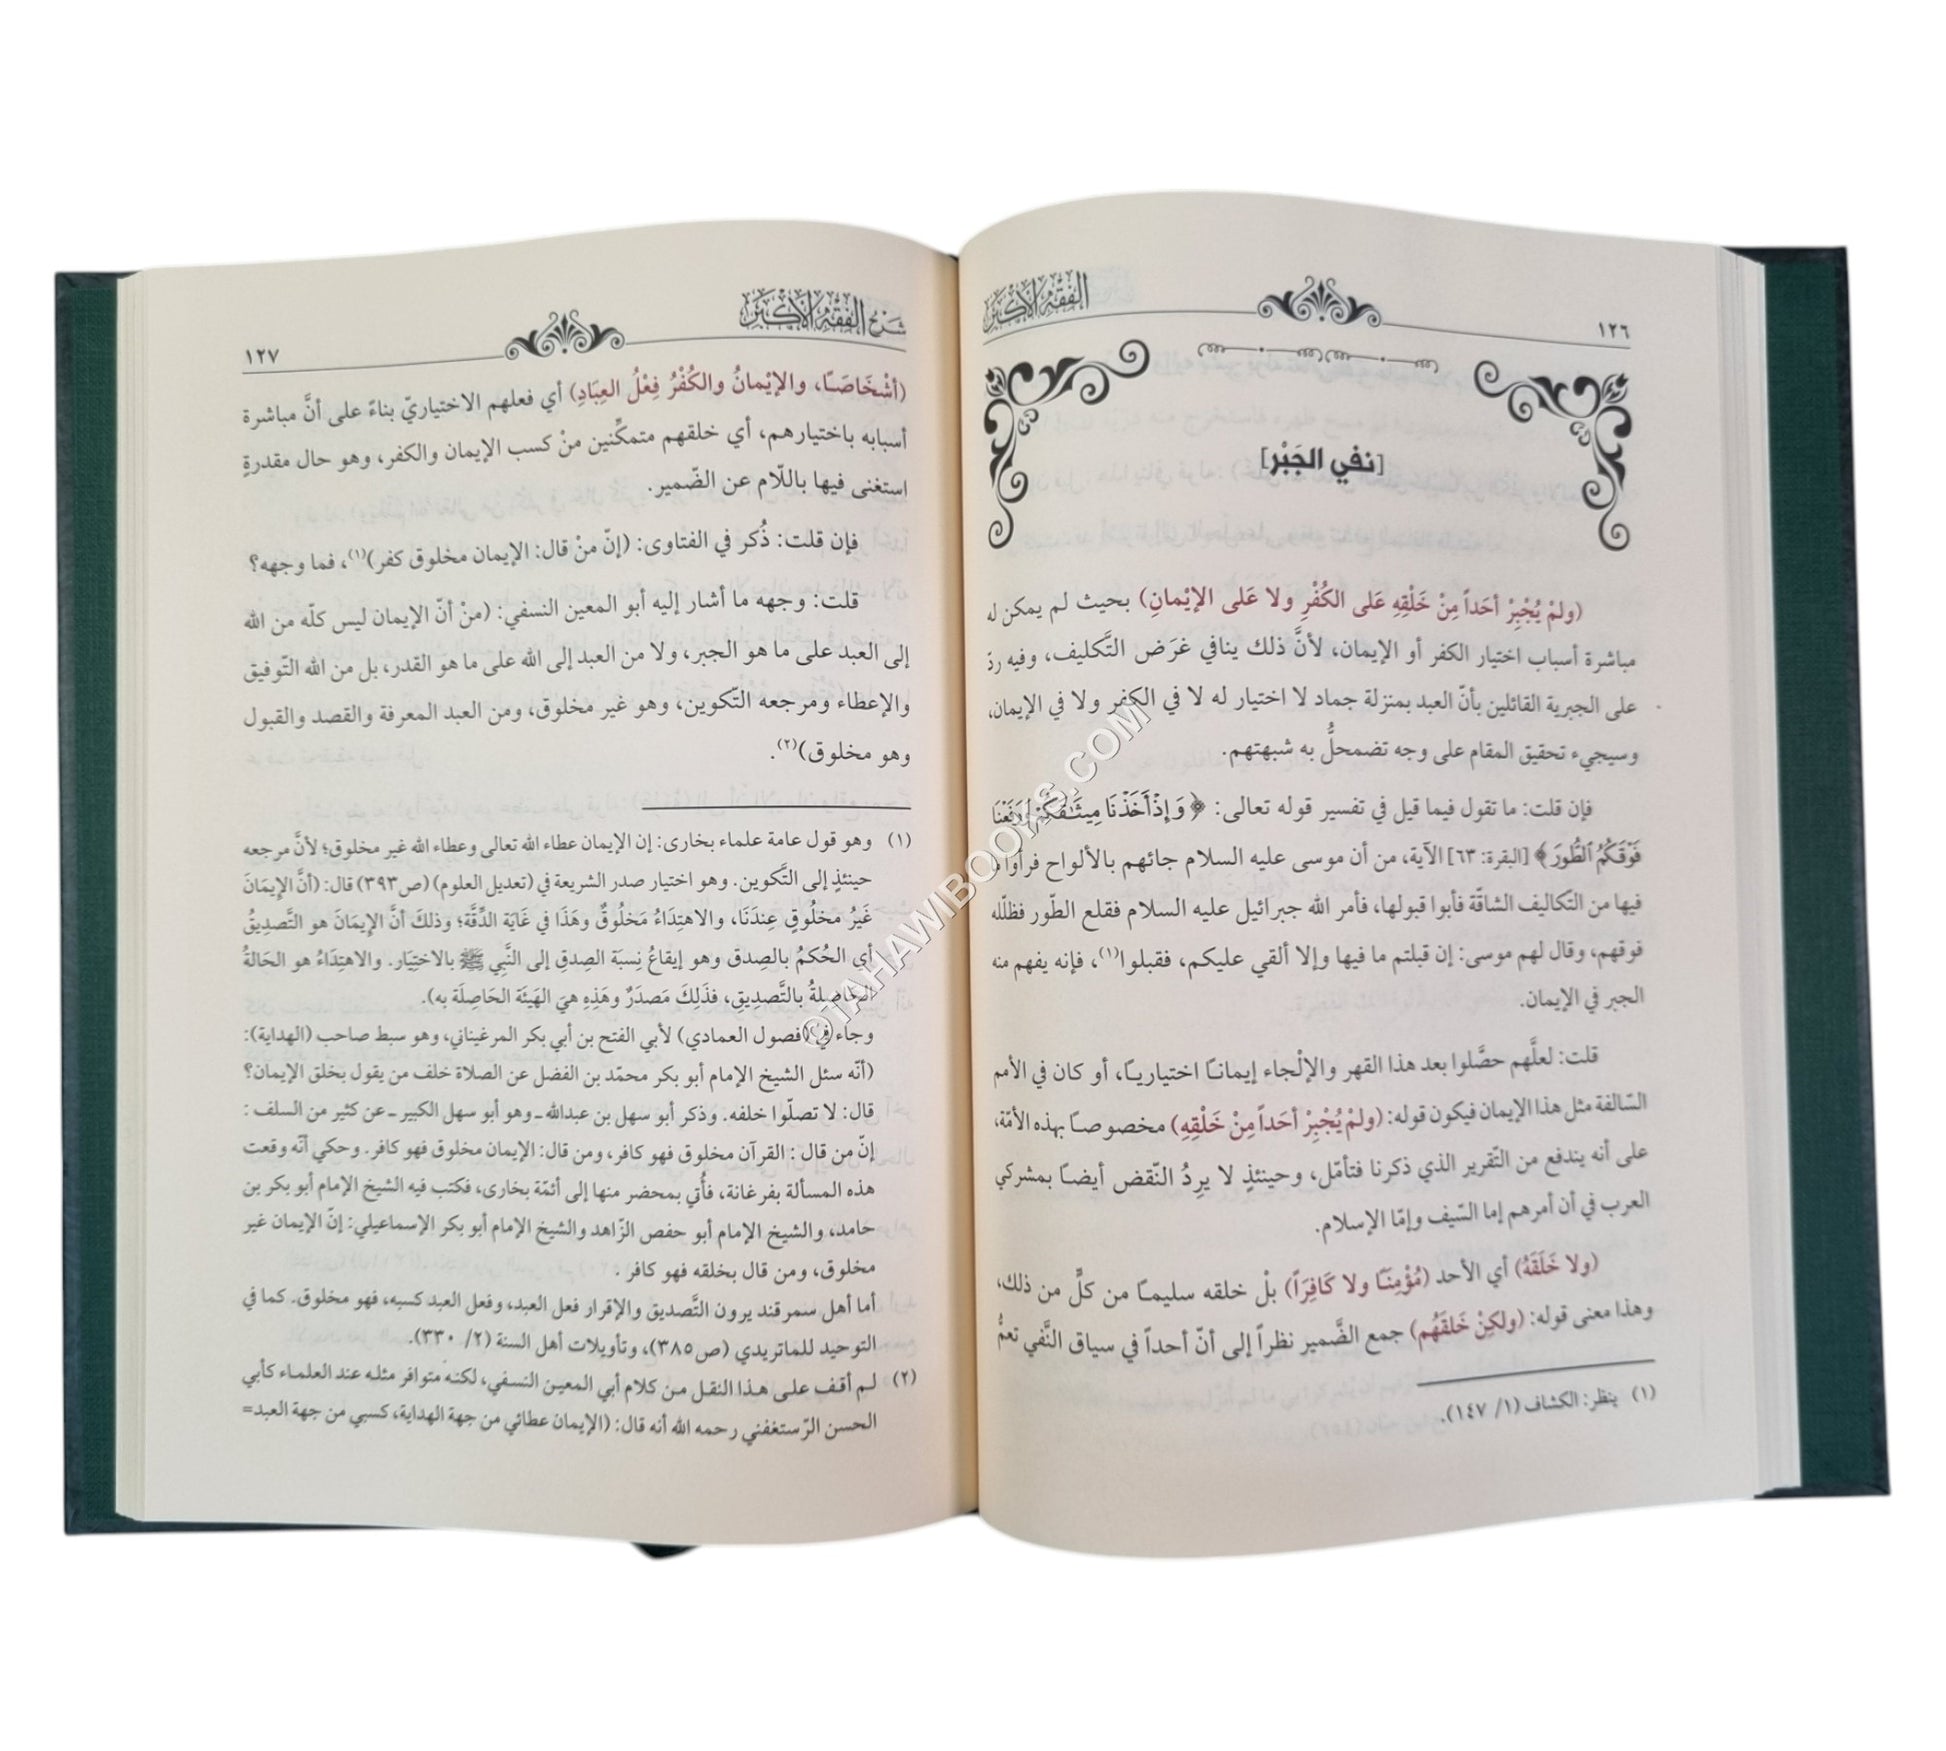 الفقه الأكبر
١٢٦
[نفي الجَبْر]
(ولمْ يُجْبِرْ أحَداً مِنْ خَلْقِهِ عَلى الكُفْرِ ولا عَلى الإيْمانِ) بحيث لم يمكن له
مباشرة أسباب اختيار الكفر أو الإيمان، لأنَّ ذلك ينافي غرَض التَّكليف، وفيه ردّ
على الجبرية القائلين بأنّ العبد بمنزلة جماد لا اختيار له لا في الكفر ولا في الإيمان،
وسيجيء تحقيق المقام على وجه تضمحلُّ به شبهتهم.
فإن قلت: ما تقول فيما قيل في تفسير قوله تعالى: ﴿وَإِذْ أَخَذْنَا مِيثَٰقَكُمْ وَرَفَعْنَا
فَوْقَكُمُ ٱلطُّورَ﴾ [البقرة: ٦٣] الآية، من أن موسى عليه السلام جائهم بالألواح فرأوا ما
فيها من التكاليف الشاقّة فأبوا قبولها، فأمر الله جبرائيل عليه السلام فقلع الطّور فظلّله
فوقهم، وقال لهم موسى: إن قبلتم ما فيها وإلا ألقي عليكم، فقبلوا(١)، فإنه يفهم منه
الجبر في الإيمان.
قلت: لعلَّهم حصَّلوا بعد هذا القهر والإلْجاء إيمانـًا اختياريـًا، أو كان في الأمم
السّالفة مثل هذا الإيمان فيكون قوله: (ولمْ يُجْبِرْ أحَداً مِنْ خَلْقِهِ) مخصوصـًا بهذه الأمّة،
على أنه يندفع من التّقرير الذي ذكرنا فتأمّل، وحينئذٍ لا يرِدُ النّقض أيضـًا بمشركي
العرب في أن أمرهم إما السّيف وإمّا الإسلام.
(ولا خَلَقَهُ) أي الأحد (مُؤْمِنـًا ولا كَافِرَاً) بلْ خلقه سليمـًا من كلٍّ من ذلك،
وهذا معنى قوله: (ولكِنْ خَلقَهُم) جمع الضَّمير نظراً إلى أنّ أحداً في سياق النَّفي تعمُّ
(١) ينظر: الكشاف (١/ ١٤٧).
شرح الفقه الأكبر
١٢٧
(أشْخَاصَـًا، والإيْمانُ والكُفْرُ فِعْلُ العِبَادِ) أي فعلهم الاختياريّ بناءً على أنَّ مباشرة
أسبابه باختيارهم، أي خلقهم متمكِّنين منْ كسب الإيمان والكفر، وهو حال مقدرةٍ
استغنى فيها باللّام عن الضّمير.
فإن قلت: ذُكر في الفتاوى: (إنّ منْ قال: الإيمان مخلوق كفر)(١)، فما وجهه؟
قلت: وجهه ما أشار إليه أبو المعين النسفي: (منْ أنّ الإيمان ليس كلّه من الله
إلى العبد على ما هو الجبر، ولا من العبد إلى الله على ما هو القدر، بل من الله التّوفيق
والإعطاء ومرجعه التّكوين، وهو غير مخلوق، ومن العبد المعرفة والقصد والقبول
وهو مخلوق)(٢).
(١) وهو قول عامة علماء بخارى: إن الإيمان عطاء الله تعالى وعطاء الله غير مخلوق؛ لأنَّ مرجعه
حينئذٍ إلى التَّكوين. وهو اختيار صدر الشريعة في (تعديل العلوم) (ص٣٩٣) قال: (أنَّ الإِيمَانَ
غَيرُ مخلُوقٍ عِندَنَا، والاهتِدَاءُ مَخلُوقٌ وهَذَا في غَايَة الدِّقَّة؛ وذلكَ أنَّ الإيمَانَ هو التَّصدِيقُ
أي الحُكمُ بالصِدق وهو إيقاعُ نِسبَة الصِدقِ إلى النَّبي ﷺ بالاختِيَار. والاهتِدَاءُ هو الحَالةُ
الحَاصِلةُ بالتَّصدِيقِ، فذَلِكَ مَصدَرٌ وهَذِهِ هيَ الهَيئَة الحَاصِلَة به).
وجاء في (فصول العمادي) لأبي الفتح بن أبي بكر المرغيناني، وهو سبط صاحب (الهداية):
(أنّه سئل الشيخ الإمام أبو بكر محمّد بن الفضل عن الصلاة خلف من يقول بخلق الإيمان؟
قال: لا تصلّوا خلفه. وذكر أبو سهل بن عبدالله ـ وهو أبو سهل الكبير ـ عن كثير من السلف :
إنّ من قال : القرآن مخلوق فهو كافر، ومن قال: الإيمان مخلوق فهو كافر. وحكي أنّه وقعت
هذه المسألة بفرغانة، فأُتي بمحضر منها إلى أئمّة بخارى، فكتب فيه الشيخ الإمام أبو بكر بن
حامد، والشيخ الإمام أبو حفص الزّاهد والشيخ الإمام أبو بكر الإسماعيلي: إنّ الإيمان غير
مخلوق، ومن قال بخلقه فهو كافر .
أما أهل سمرقند يرون التَّصديق والإقرار فعل العبد، وفعل العبد كسبه، فهو مخلوق. كما في
التوحيد للماتريدي (ص٣٨٥)، وتأويلات أهل السنة (٢/ ٣٣٠).
(٢) لـم أقـف علـى هـذا النقـل مـن كلام أبي المعيـن النسفـي، لكنـه متوافر مثلـه عند العلمـاء كأبي
الحسن الرّستغفني رحمه الله أنه قال: (الإيمان عطائي من جهة الهداية، كسبي من جهة العبد=
©TAHAWIBOOKS.COM